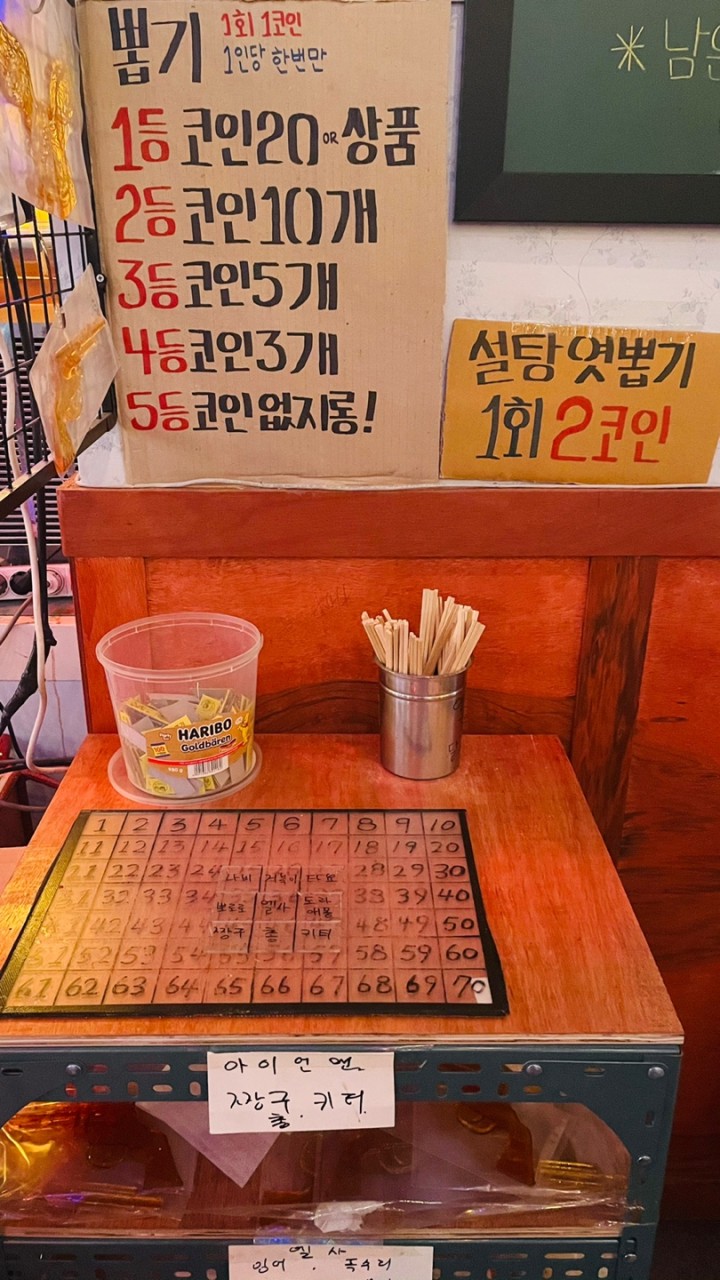 뽑기 1회 1코인
1인당 한번만
1등 코인20 OR 상품
2등 코인10개
3등 코인5개
4등 코인3개
5등 코인 없지롱!
* 남은
설탕 엿뽑기
1회 2코인
100
HARIBO
Goldbären
1 2 3 4 5 6 7 8 9 10
11 12 13 14 15 16 17 18 19 20
22 23 24 28 29 30
32 33 34 38 39 40
42 43 48 49 50
52 53 54 58 59 60
61 62 63 64 65 66 67 68 69 70
나비 거북이 타요
뽀로로 엘사 도라에몽
짱구 총 키티
아이언맨
짱구. 키티.
총
엘사
잉어. 독수리